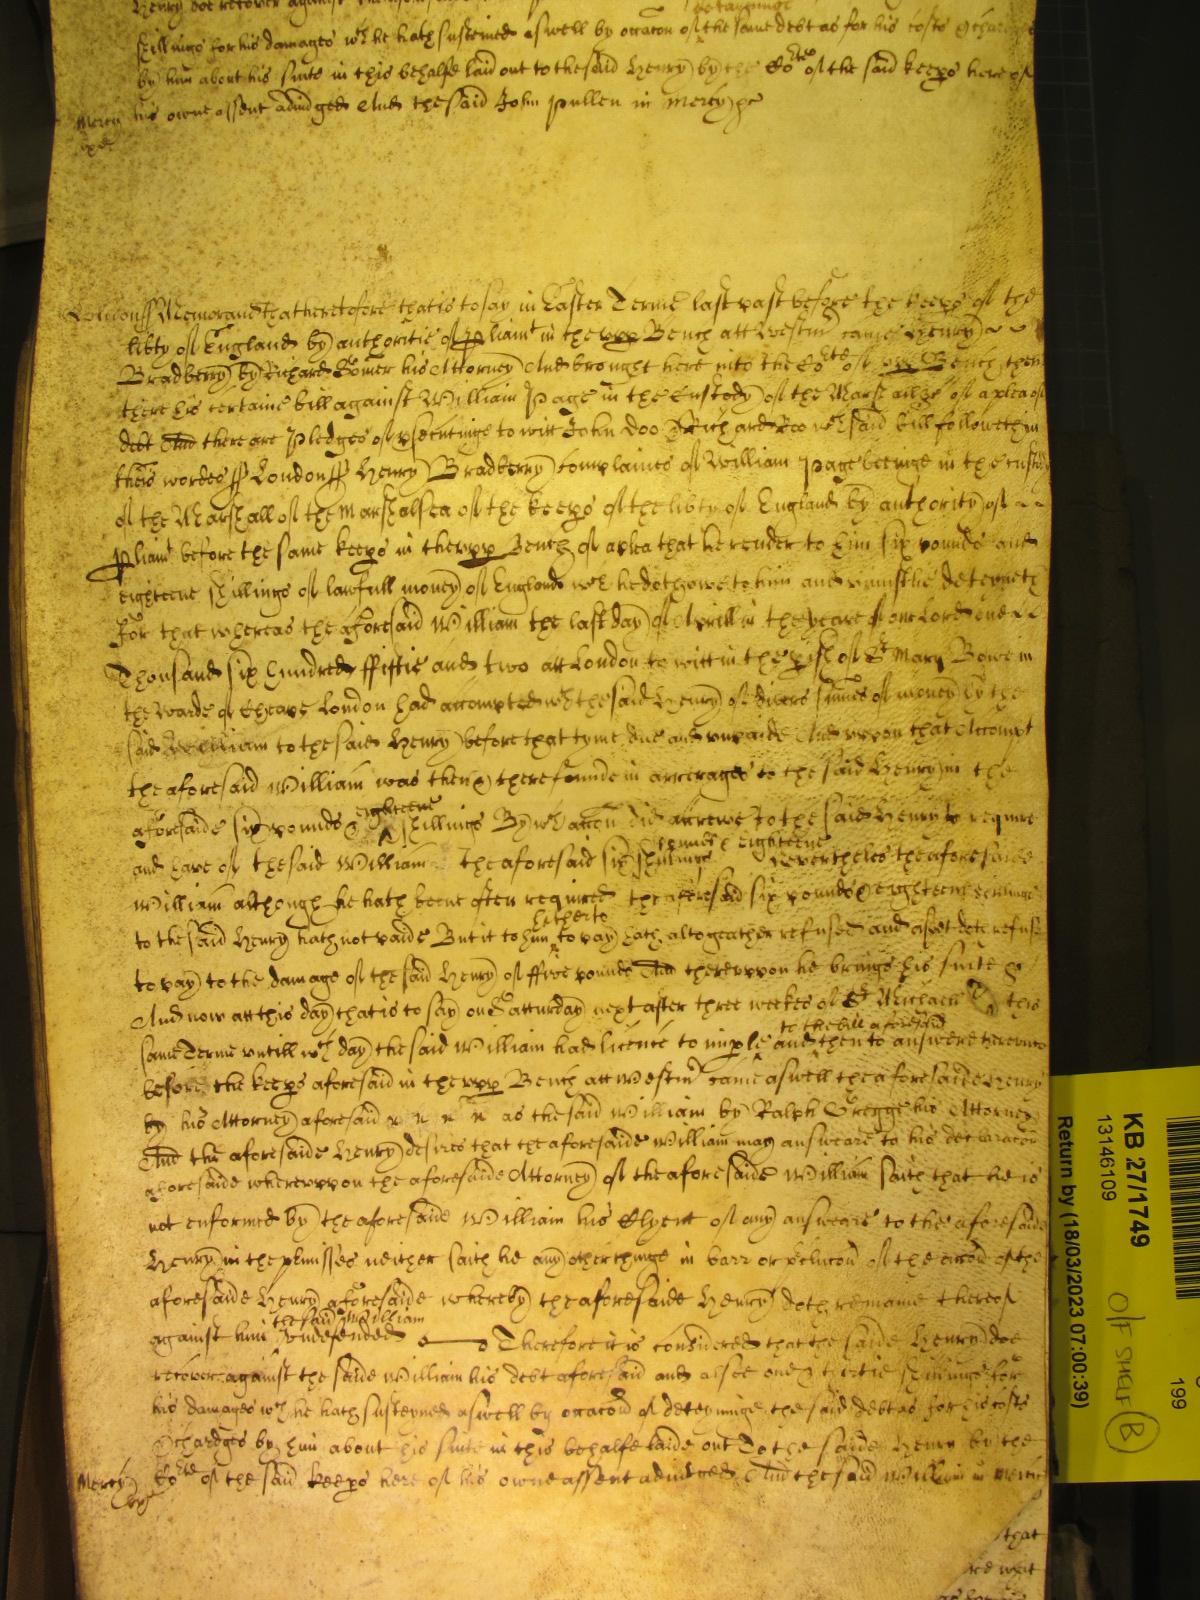 shillings for his damages wch he hath susteined aswell by occacon of the same debt as for his costs & charges
detayninge
by him about his suite in this behalfe laid out to the said Henry by the Cote of the said keeps here of
his owne assent adiudged And the said John Pullen in Mercy &c
Mercy
London ss Memorand that heretofore that is to say in Easter Terme last past before the keeps of the
libty of England by authoritie of pliamt in the vpp Bench att Westmr came Henry
Bradberry by Richard his Attorney And brought here into the Cote of vpp Bench then
there his certaine bill against William Page in the Custody of the Marshall &c of a plea of
debt And there are pledges of psecutinge to witt John Doo & Richard Roo wch said bill followeth in
theis wordes ss London ss Henry Bradberry complaines of William Page beeinge in the custody
of the Marshall of the Marshalsea of the keeps of the libty of England by authority of
pliamt before the same keeps in the vpp Bench of a plea that he render to him six pounds and
eighteene shillings of lawfull money of England wch he doth owe to him and vniustlie deteyneth
For that whereas the aforesaid William the last day of Aprill in the yeare of our Lord one
Thousand six hundred ffiftie and two att London to witt in the pish of St Mary Bowe in
the Warde of Cheape London had accompted wth the said Henry of divers summes of money by the
said William to the said Henry before that tyme due and vnpaide And vppon that Accompt
the aforesaid William was then & there founde in arrerages to the said Henry in the
aforesaide six pounds & eighteene shillings By wch accon did accrewe to the said Henry to require
and have of the said William the aforesaid six pounds & eighteene shillings Neverthelesse the aforesaide
William although he hath beene often required the aforesaid six pounds & eighteene shillings
to the said Henry hath not paide But it to him hitherto to pay hath altogeather refused and as yet doth refuse
to pay to the damage of the said Henry of ffive pounds And therevppon he brings his suite &c
And now att this day that is to say on Satturday next after three weekes of St Michaell this
same Terme vntill wch day the said William had licence to imple and then to answere therevnto
to the bill aforesaid
before the keeps aforesaid in the vpp Bench att Westmr came aswell the aforesaide Henry
by his Attorney aforesaid as the said William by Ralph Gregge his Attorney
And the aforesaide Henry desires that the aforesaide William may answeare to his declaracon
aforesaide wherevppon the aforesaide Attorney of the aforesaide William saith that he is
not enformed by the aforesaide William his Clyent of any answeare to the aforesaide
Henry in the pmisses neither saith he any other thinge in barr or pclucon of the accon of the
aforesaide Henry aforesaide whereby the aforesaide Henry doth remaine thereof
against him the said William vndefended Therefore it is considered that the saide Henry doe
recover against the saide William his debt aforesaid and alsoe one & thirtie shillings for
his damages wch he hath susteyned aswell by occacon of deteyninge the said debt as for his costs
& chardges by him about his suite in this behalfe laide out To the saide Henry by the
Cote of the said keeps here of his owne assent adiudged And the said William in Mercy
Mercy
that
KB 27/1749
13146109
Return by (18/03/2023 07:00:39)
O/F SHELF B
199